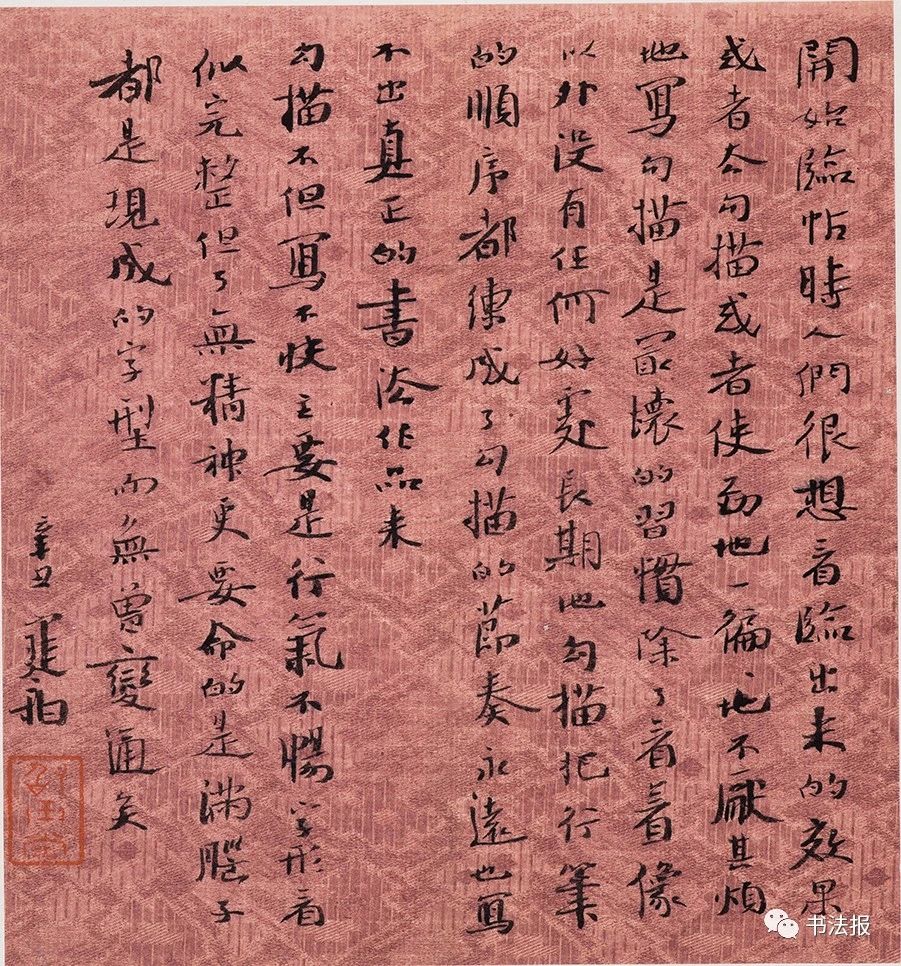 開始臨帖時人們很想看臨出来的效果
或者去勾描或者使劲地一遍、地不厭其煩
地寫勾描是最壞的習慣除了看着像
以外没有任何好處長期地勾描把行筆
的順序都練成了勾描的節奏永遠也寫
不出真正的書法作品来
勾描不但寫不快主要是行氣不暢字形看
似完整但了無精神更要命的是滿腦子
都是現成的字型而無曾變通矣
辛丑
书法报